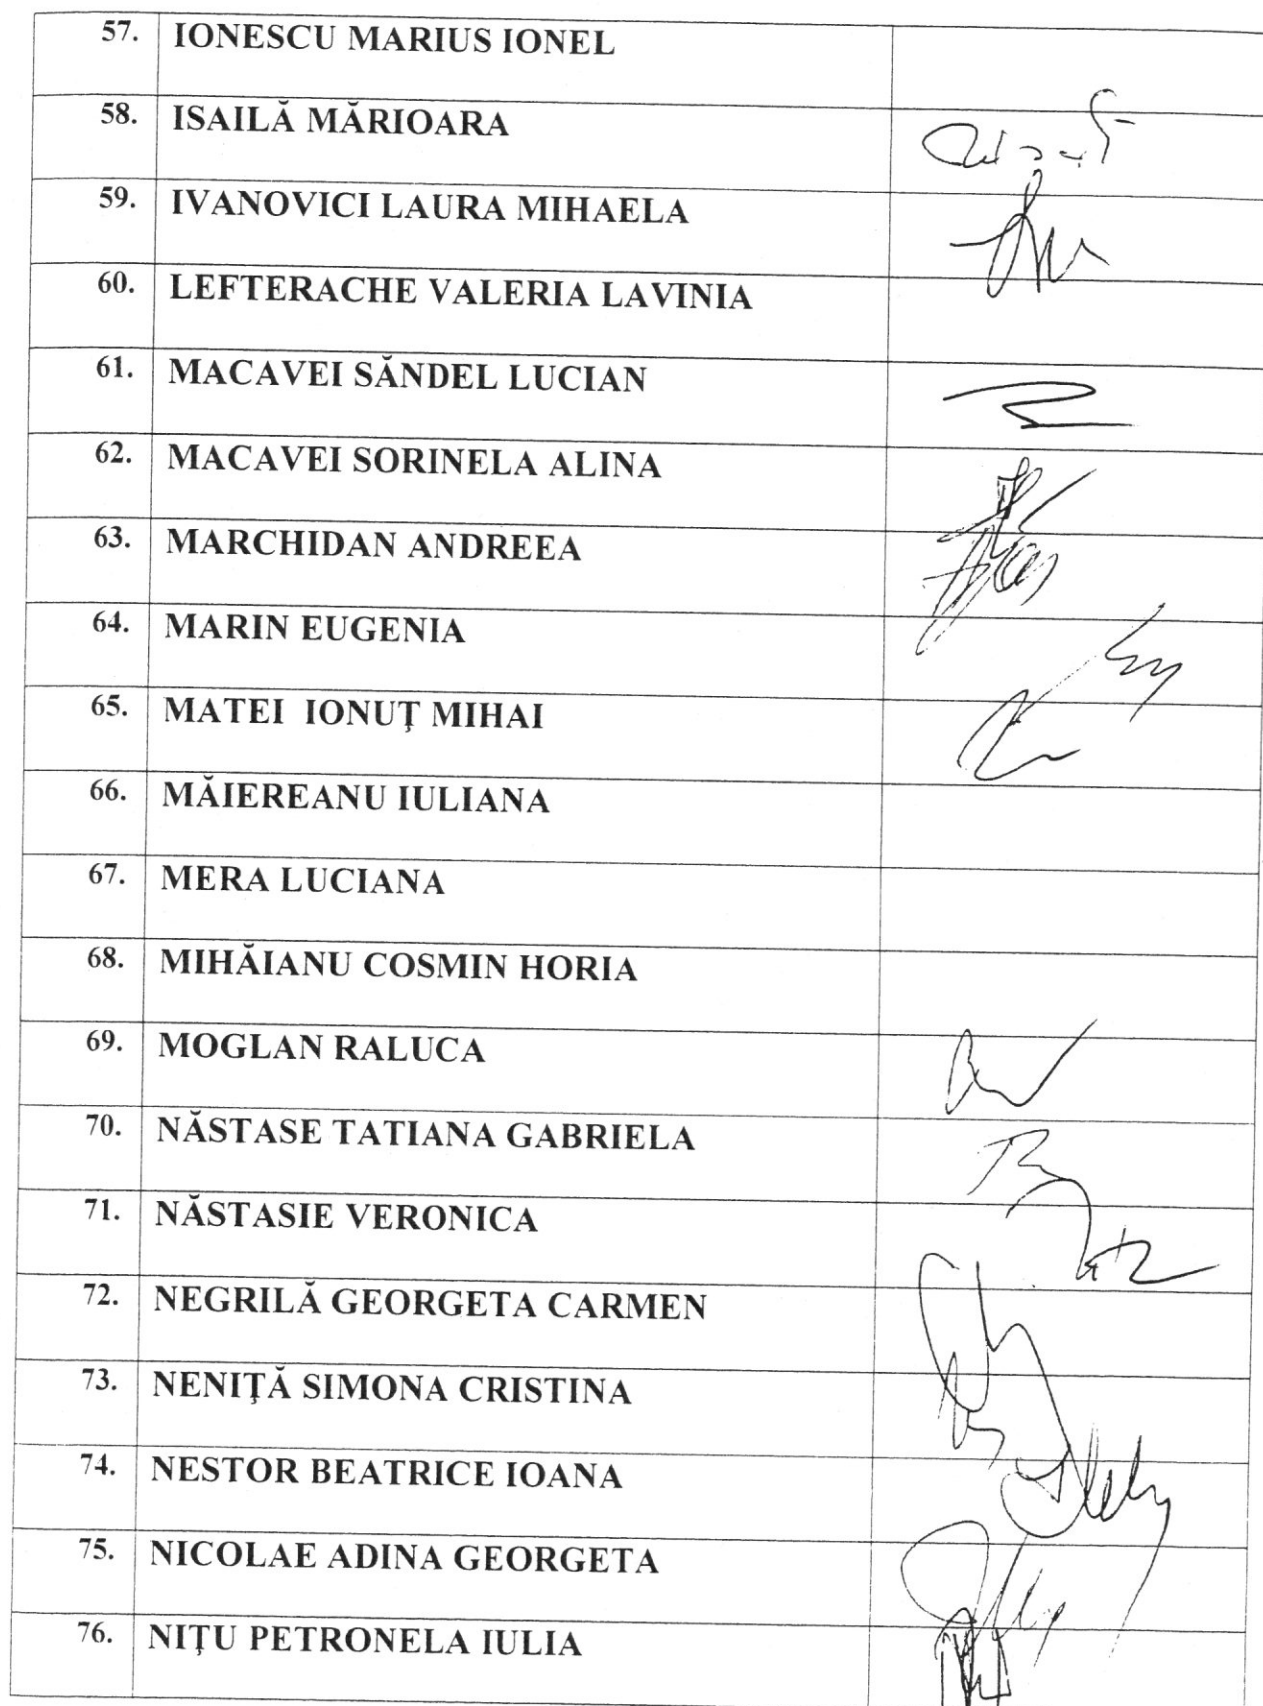 57. IONESCU MARIUS IONEL
58. ISAILĂ MĂRIOARA
59. IVANOVICI LAURA MIHAELA
60. LEFTERACHE VALERIA LAVINIA
61. MACAVEI SĂNDEL LUCIAN
62. MACAVEI SORINELA ALINA
63. MARCHIDAN ANDREEA
64. MARIN EUGENIA
65. MATEI IONUŢ MIHAI
66. MĂIEREANU IULIANA
67. MERA LUCIANA
68. MIHĂIANU COSMIN HORIA
69. MOGLAN RALUCA
70. NĂSTASE TATIANA GABRIELA
71. NĂSTASIE VERONICA
72. NEGRILĂ GEORGETA CARMEN
73. NENIŢĂ SIMONA CRISTINA
74. NESTOR BEATRICE IOANA
75. NICOLAE ADINA GEORGETA
76. NIŢU PETRONELA IULIA